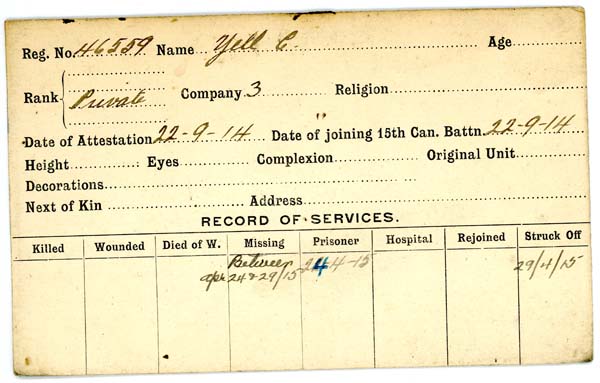 Reg. No. 46559 Name Yell C. Age
Rank Private Company 3 Religion
Date of Attestation 22-9-14 Date of joining 15th Can. Battn. " 22-9-14
Height Eyes Complexion Original Unit
Decorations
Next of Kin Address
RECORD OF SERVICES.
Killed Wounded Died of W. Missing Prisoner Hospital Rejoined Struck Off
Between 24-4-15 29/4/15
apr 24 & 29/15